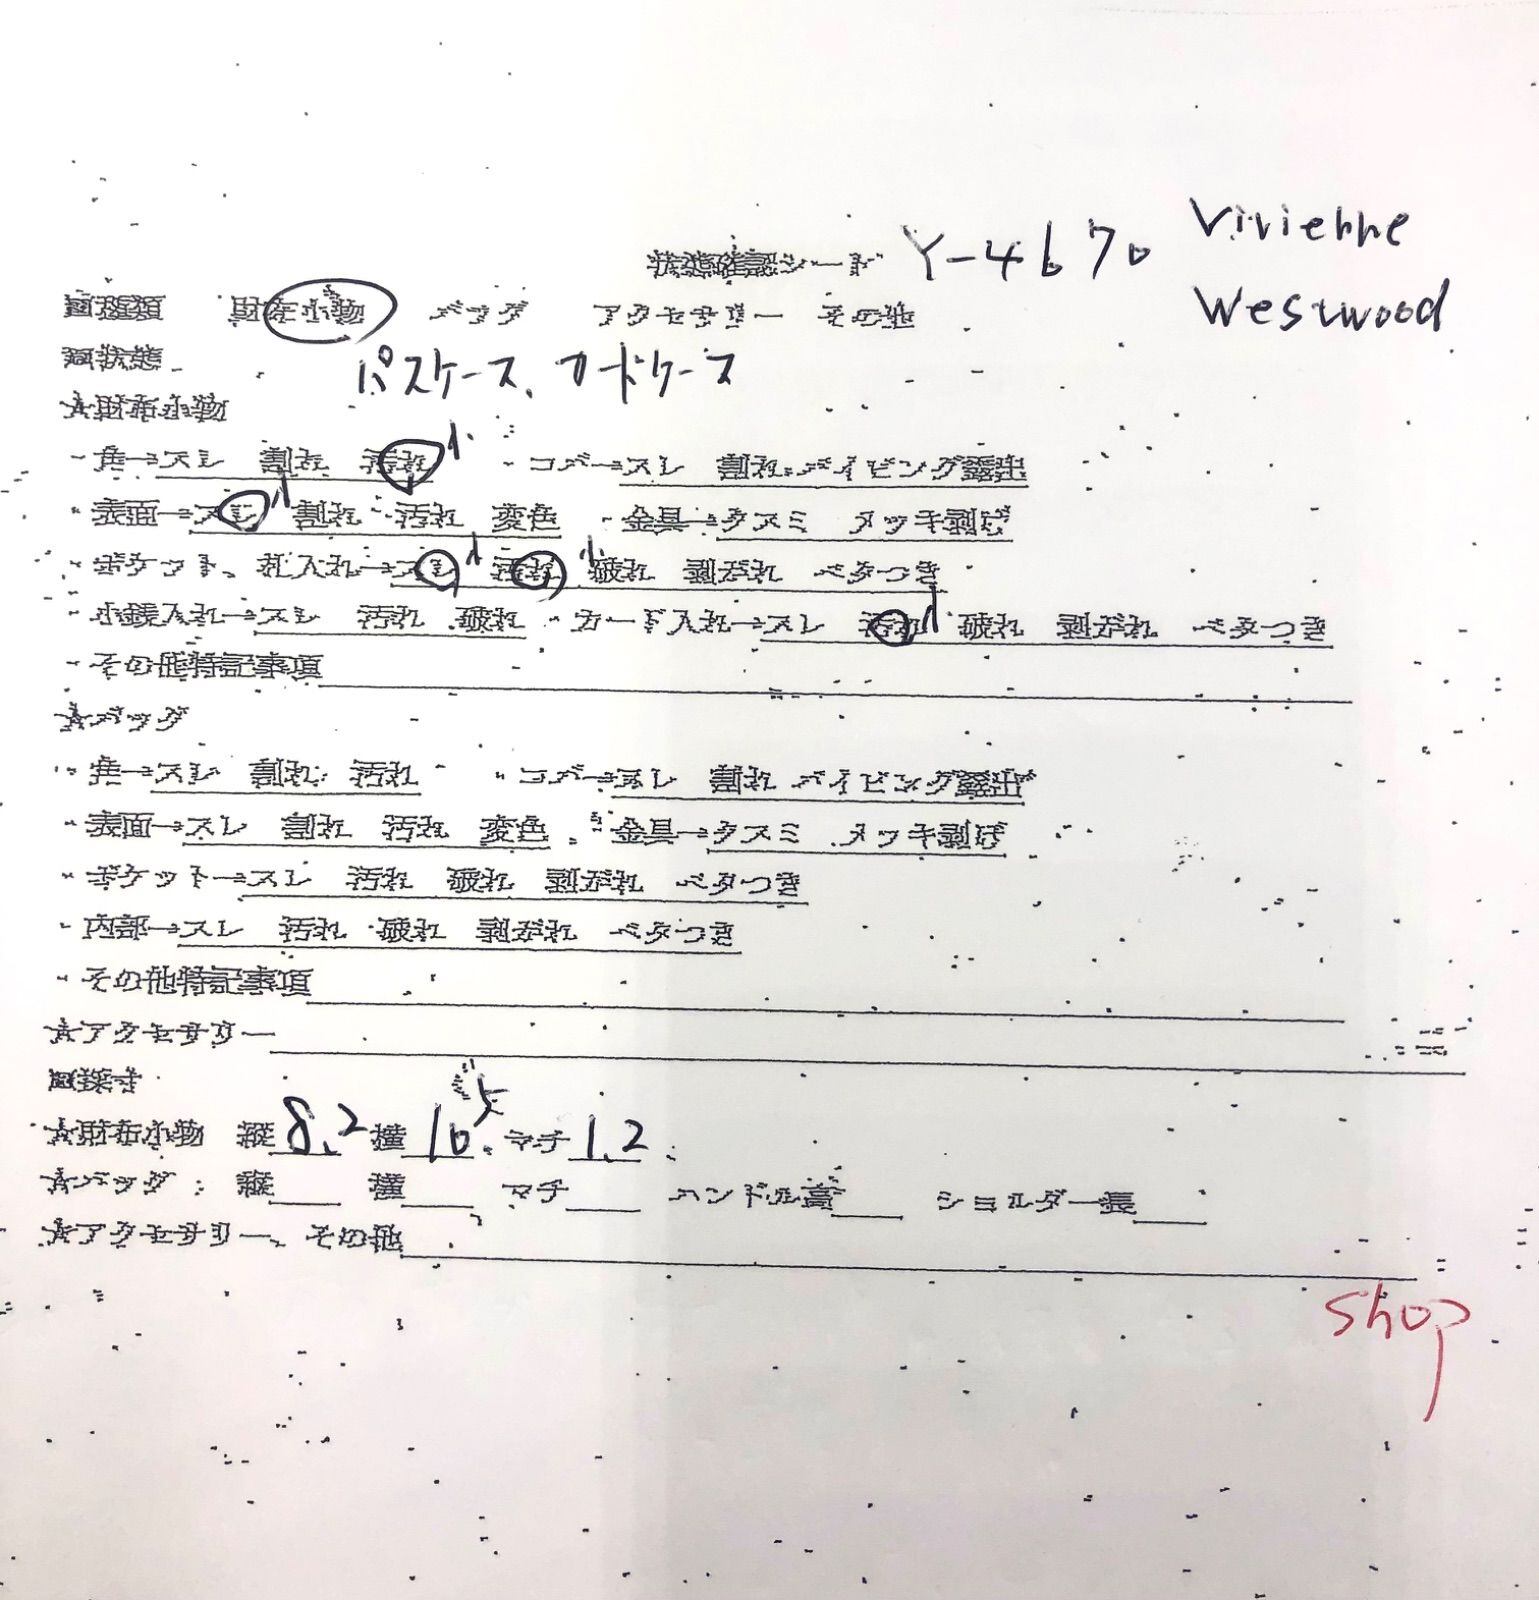 状態確認シード Y-4670 Vivienne
Westwood
回種類 財布小物 バッグ アクセサリー その他
回状態 パスケース、カードケース
☆財布小物
・角→スレ 割れ 汚れ 小 ・コバ→スレ 割れ パイピング露出
・表面→スレ 小 割れ 汚れ 変色 ・金具→クスミ メッキ剥げ
・ポケット、札入れ→スレ 小 汚れ 小 破れ 剥がれ ベタつき
・小銭入れ→スレ 汚れ 破れ ・カード入れ→スレ 汚れ 小 破れ 剥がれ ベタつき
・その他特記事項
☆バッグ
・角→スレ 割れ 汚れ ・コバ→スレ 割れ パイピング露出
・表面→スレ 割れ 汚れ 変色 ・金具→クスミ メッキ剥げ
・ポケット→スレ 汚れ 破れ 剥がれ ベタつき
・内部→スレ 汚れ 破れ 剥がれ ベタつき
・その他特記事項
☆アクセサリー
回採寸
☆財布小物 縦8.2 横10.5 マチ1.2
☆バッグ 縦 横 マチ ハンドル高 ショルダー長
☆アクセサリー、その他
shop